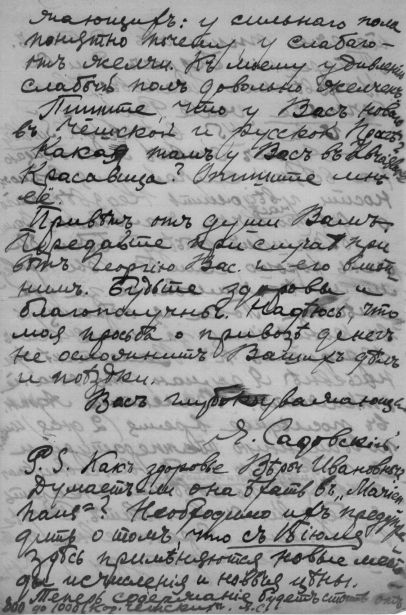 лающихъ: у сильнаго пола
понятно почему у слабаго –
нѣтъ желчи. Къ моему удивленію
слабый полъ довольно желченъ.
Пишите, что у Васъ новаго
въ чешской и русской Прагѣ?
Какая тамъ у Васъ въ
красавица? Опишите мнѣ
её.
Привѣтъ отъ души Вамъ.
Передайте при случаѣ при
вѣтъ Георгію Вас. и его
нимъ. Будьте здоровы и
благополучны. Надѣюсь, что
моя просьба о привозѣ денегъ
не осложнитъ Вашихъ дѣлъ
и поѣздки.
Васъ глубокоуважающій
Я. Садовскій
P.S. Какъ здоровье Вѣры Ивановны
Думаетъ ли она ѣхать въ
Необходимо ихъ предупре
дить о томъ, что съ іюня
здѣсь примѣняются новые мето
ды исчисленія и новыя цѣны.
Теперь содержаніе будетъ стоить отъ
800 до 1000 кор. чешскихъ Я.С.